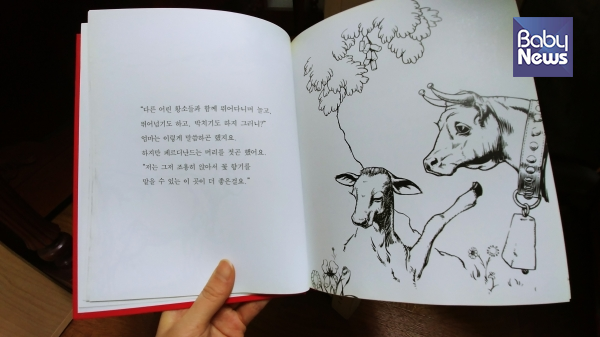 "다른 어린 황소들과 함께 뛰어다니며 놀고,
뛰어넘기도 하고, 박치기도 하지 그러니?"
엄마는 이렇게 말씀하곤 했지요.
하지만 페르디난드는 머리를 젓곤 했어요.
"저는 그저 조용히 앉아서 꽃 향기를
맡을 수 있는 이 곳이 더 좋은걸요."
Baby
News